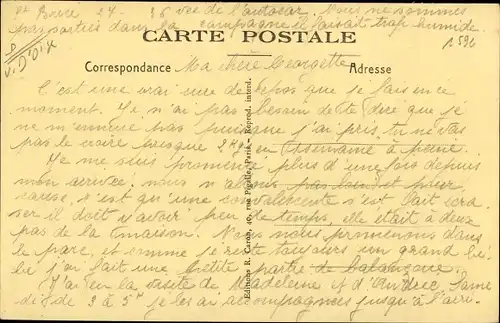 24 - 26 vue de l'autocar. Nous ne sommes
pas sorties dans la campagne il faisait trop humide.
CARTE POSTALE
Correspondance Ma chère Georgette Adresse
C'est une vrai cure de repos que je fais en ce
moment. Je n'ai pas besoin de te dire que je
ne m'ennuie pas puisque j'ai pris, tu ne vas
pas le croire presque 2 kg en 1 semaine à peine.
Je me suis promenée plus d'une fois depuis
mon arrivée; nous n'allons pas loin et pour
cause, c'est qu'une convalescente s'est fait
ser il doit y avoir peu de temps, elle était à deux
pas de la maison. Nous nous promenons dans
le parc, et comme je reste toujours un grand bé
bé j'ai fait une petite partie de balançoire.
J'ai eu la visite de Madeleine et d'Andrée, Same
di de 3 à 5h je les ai accompagnées jusqu'à l'arri-
Editions R. Caron, 10, rue Pigalle, Paris. - Reprod. interd.